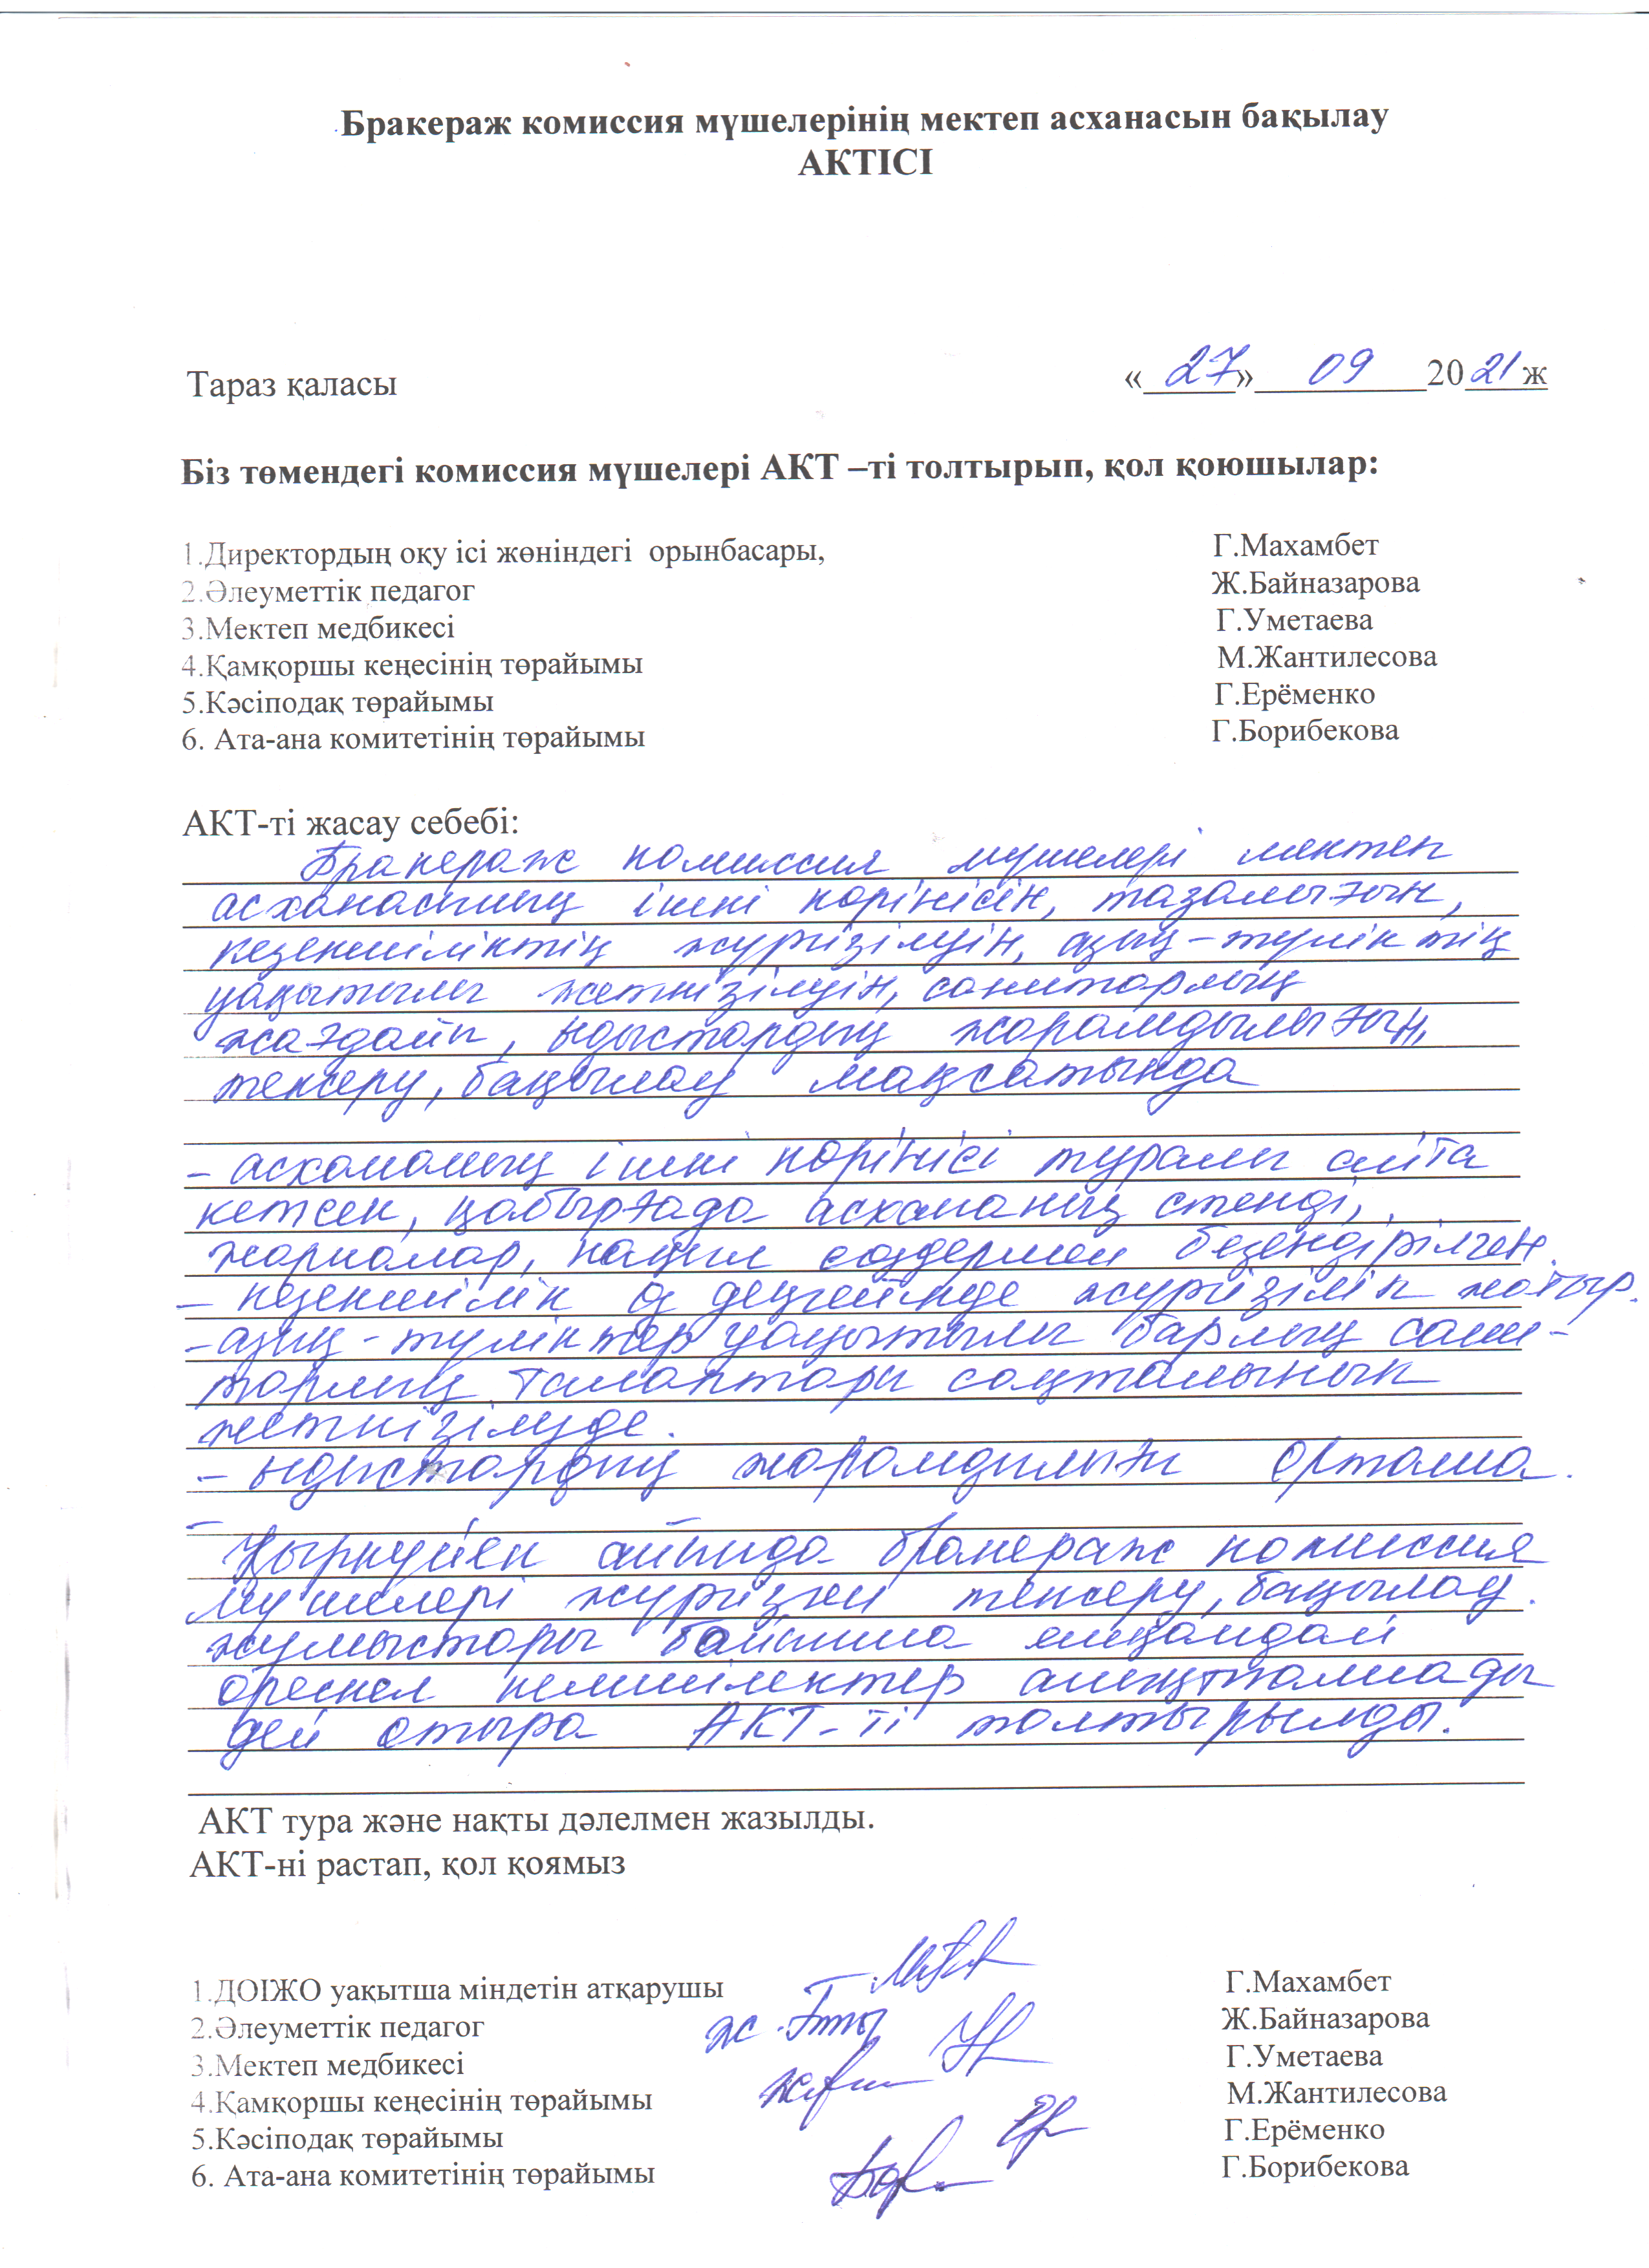 Бракераж комиссия мүшелерінің мектеп асханасын бақылау
АКТІСІ
Тараз қаласы «27» 09 2021 ж
Біз төмендегі комиссия мүшелері АКТ –ті толтырып, қол қоюшылар:
1.Директордың оқу ісі жөніндегі орынбасары, Г.Махамбет
2.Әлеуметтік педагог Ж.Байназарова
3.Мектеп медбикесі Г.Уметаева
4.Қамқоршы кеңесінің төрайымы М.Жантилесова
5.Кәсіподақ төрайымы Г.Ерёменко
6. Ата-ана комитетінің төрайымы Г.Борибекова
АКТ-ті жасау себебі:
Бракераж комиссия мүшелері мектеп
асханасының ішкі көрінісін, тазалығын,
кезекшіліктің жүргізілуін, азық-түліктің
уақытылы жеткізілуін, санитарлық
жағдайы, ыдыстардың жарамдылығын,
тексеру, бақылау мақсатында
- асхананың ішкі көрінісі туралы айта
кетсек, қабырғада асхананың стенді,
жарнамалар, нақыл сөздермен безендірілген.
- кезекшілік өз деңгейінде жүргізіліп жатыр.
- азық-түліктер уақытылы барлық сани-
тарлық талаптары сақталынып
жеткізілуде.
- ыдыстардың жарамдылығы орташа.
Қыркүйек айында бракераж комиссия
мүшелері жүргізген тексеру, бақылау
жұмыстары бойынша ешқандай
өрескел кемшіліктер анықталмады
дей отыра АКТ-ті толтырылды.
АКТ тура және нақты дәлелмен жазылды.
АКТ-ні растап, қол қоямыз
1.ДОІЖО уақытша міндетін атқарушы Г.Махамбет
2.Әлеуметтік педагог Ж.Байназарова
3.Мектеп медбикесі Г.Уметаева
4.Қамқоршы кеңесінің төрайымы М.Жантилесова
5.Кәсіподақ төрайымы Г.Ерёменко
6. Ата-ана комитетінің төрайымы Г.Борибекова